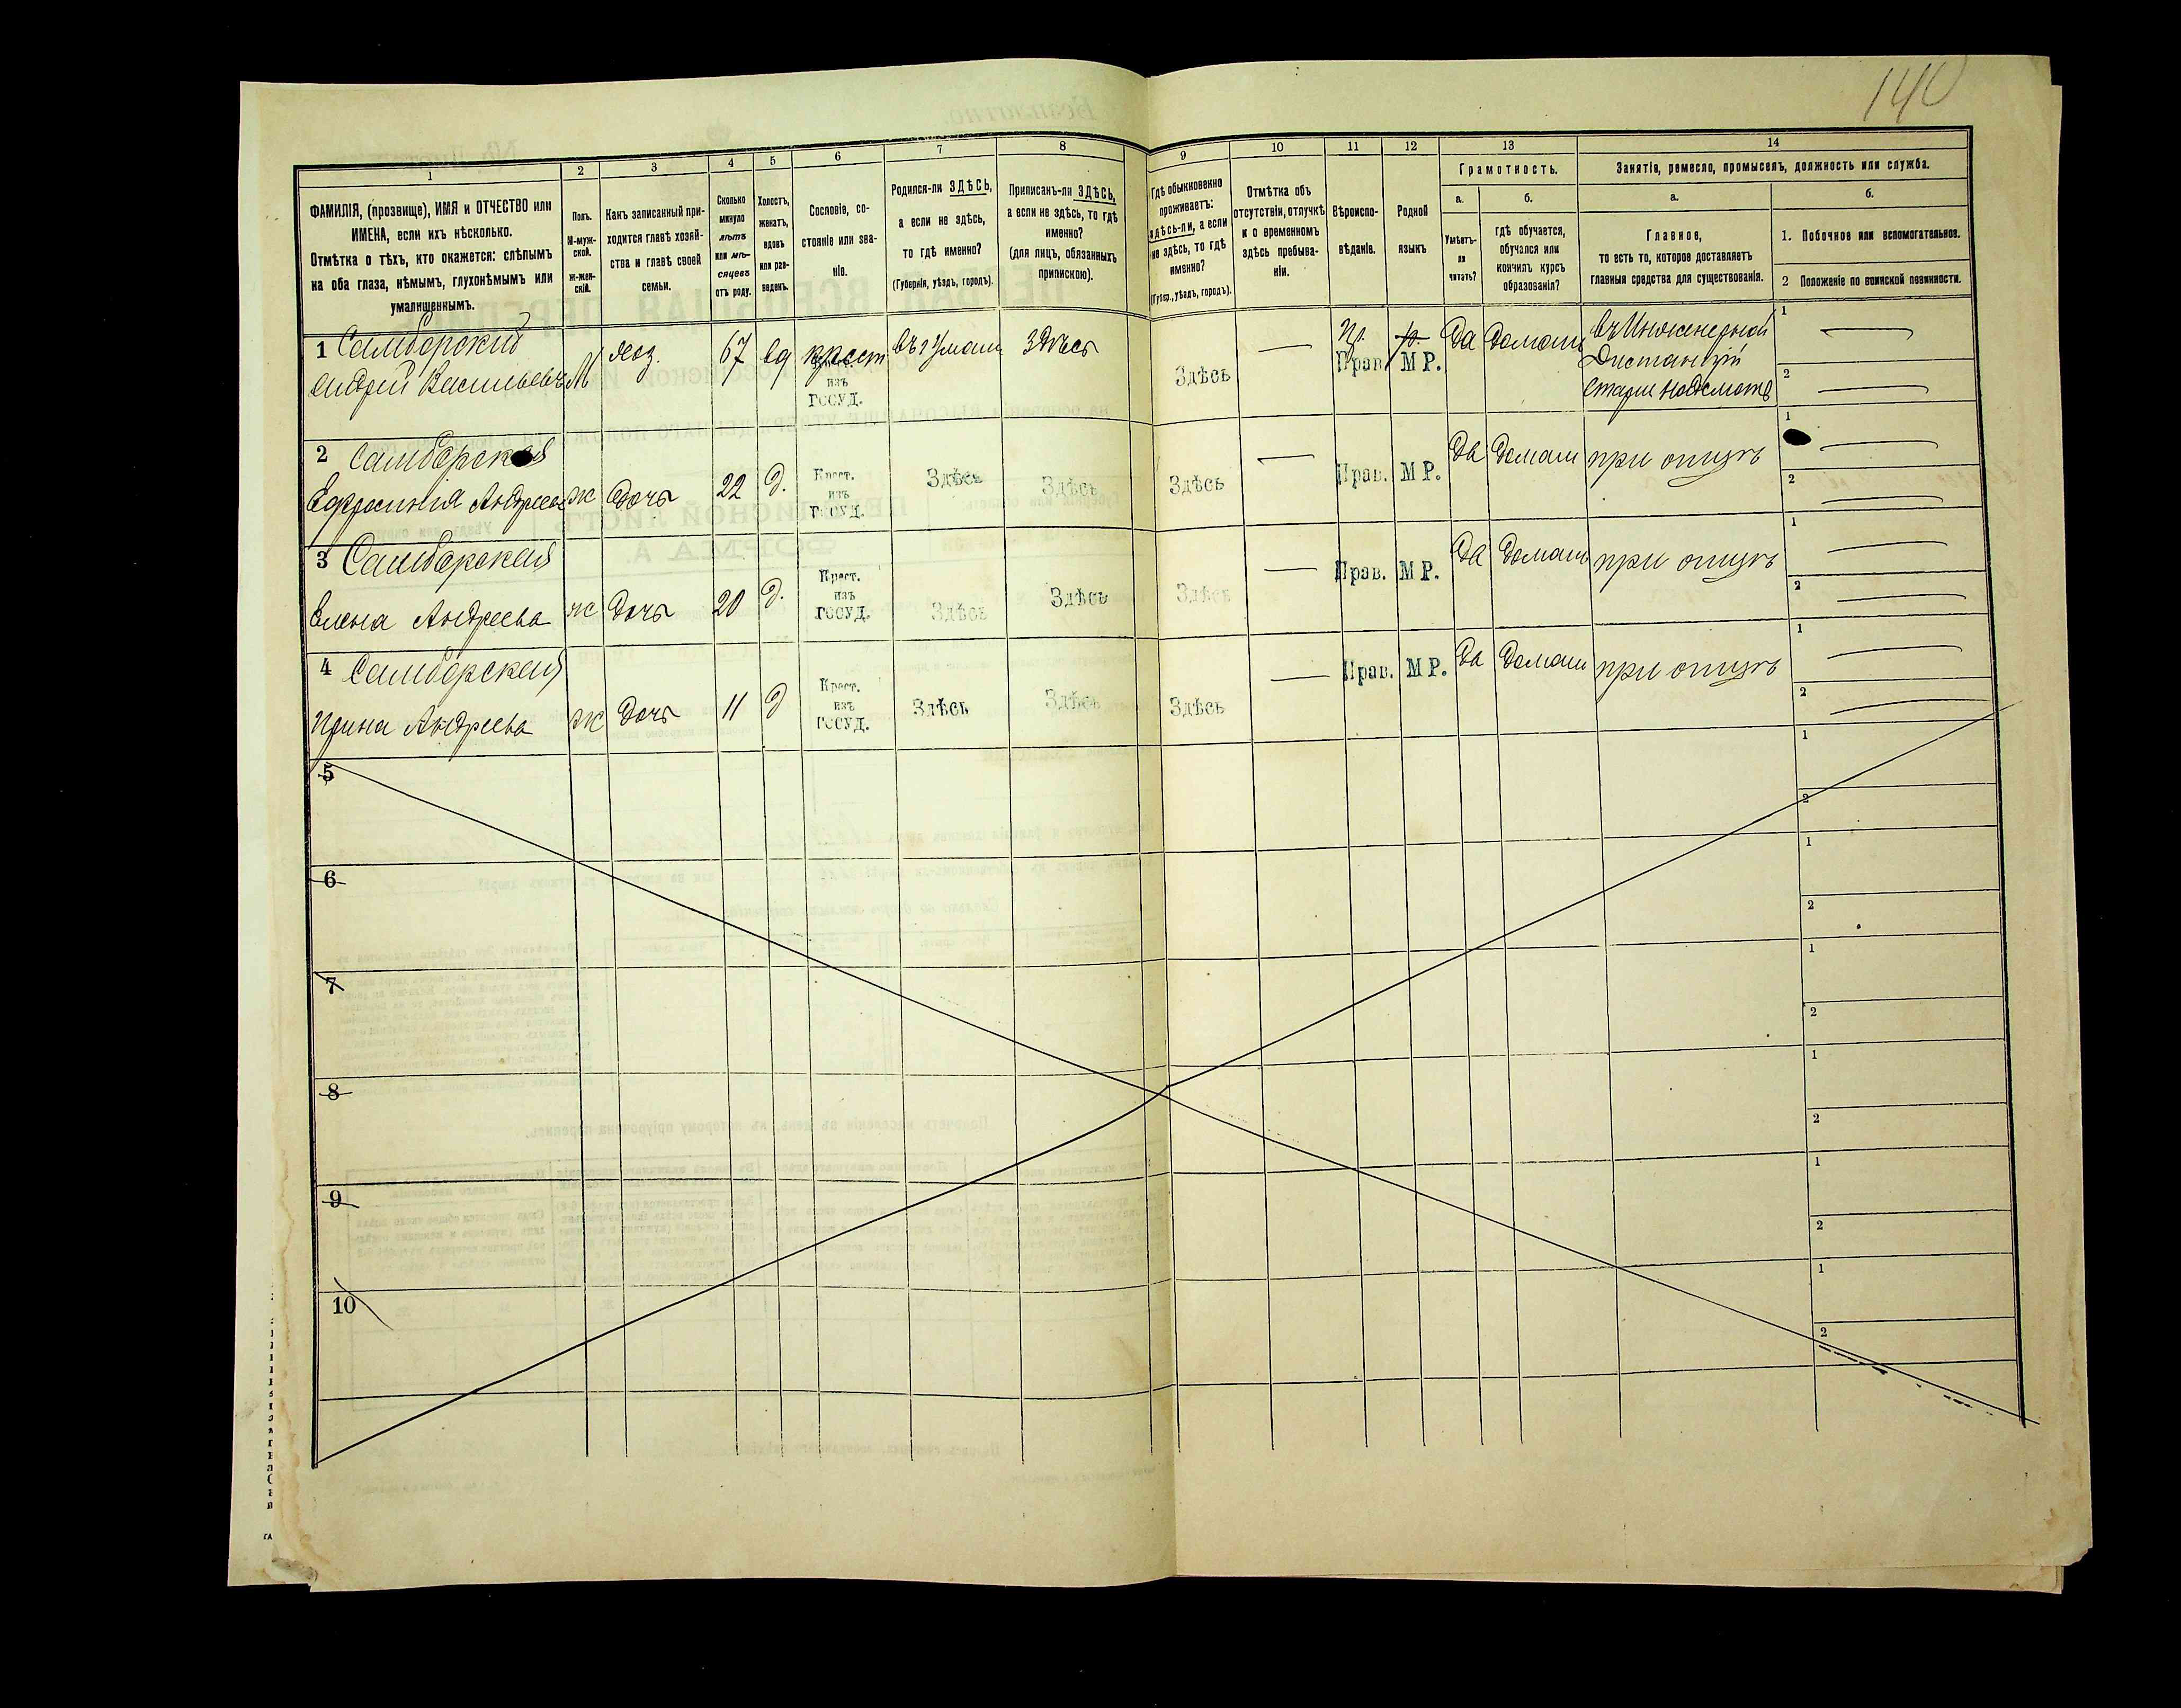 140
1
2
3
4
5
6
7
8
9
10
11
12
13
14
ФАМИЛІЯ, (прозвище), ИМЯ и ОТЧЕСТВО или
ИМЕНА, если ихъ нѣсколько.
Отмѣтка о тѣхъ, кто окажется: слѣпымъ
на оба глаза, нѣмымъ, глухонѣмымъ или
умалишеннымъ.
Полъ.
М-муж-
ской.
Ж-жен-
скій.
Какъ записанный при-
ходится главѣ хозяй-
ства и главѣ своей
семьи.
Сколько
минуло
лѣтъ
или мѣ-
сяцевъ
отъ роду.
Холостъ,
женатъ,
вдовъ
или раз-
веденъ.
Сословіе, со-
стояніе или зва-
ніе.
Родился-ли ЗДѢСЬ,
а если не здѣсь,
то гдѣ именно?
(Губернія, уѣздъ, городъ).
Приписанъ-ли ЗДѢСЬ,
а если не здѣсь, то гдѣ
именно?
(для лицъ, обязанныхъ
припискою).
Гдѣ обыкновенно
проживаетъ:
здѣсь-ли, а если
не здѣсь, то гдѣ
именно?
(Губер., уѣздъ, городъ).
Отмѣтка объ
отсутствіи, отлучкѣ
и о временномъ
здѣсь пребыва-
ніи.
Вѣроиспо-
вѣданіе.
Родной
языкъ
Грамотность.
а.
Умѣетъ-
ли
читать?
б.
гдѣ обучается,
обучался или
кончилъ курсъ
образованія?
Занятія, ремесло, промыселъ, должность или служба.
а.
Главное,
то есть то, которое доставляетъ
главныя средства для существованія.
б.
1. Побочное или вспомогательное.
2 Положеніе по воинской повинности.
1 Самборский
Андрей Васильевъ М хоз. 67 вд крест въ г Умани Здѣсь
изъ
ГОСУД.
Здѣсь — Пр. р. да домаш въ Инженерной
Прав МР. Дистанціи
1
2
2 Самборская
Ефросинія Андреева ж дочь 22 д. Крест. Здѣсь Здѣсь Здѣсь — Прав. МР. да домаш при отцѣ
изъ
ГОСУД.
1
2
3 Самборская
Елена Андреева ж дочь 20 д. Крест. Здѣсь Здѣсь Здѣсь — Прав. МР. да домаш при отцѣ
изъ
ГОСУД.
1
2
4 Самборская
Ирина Андреева ж дочь 11 д Крест. Здѣсь Здѣсь Здѣсь — Прав. МР. да домаш при отцѣ
изъ
ГОСУД.
1
2
5
1
2
6
1
2
7
1
2
8
1
2
9
1
2
10
1
2